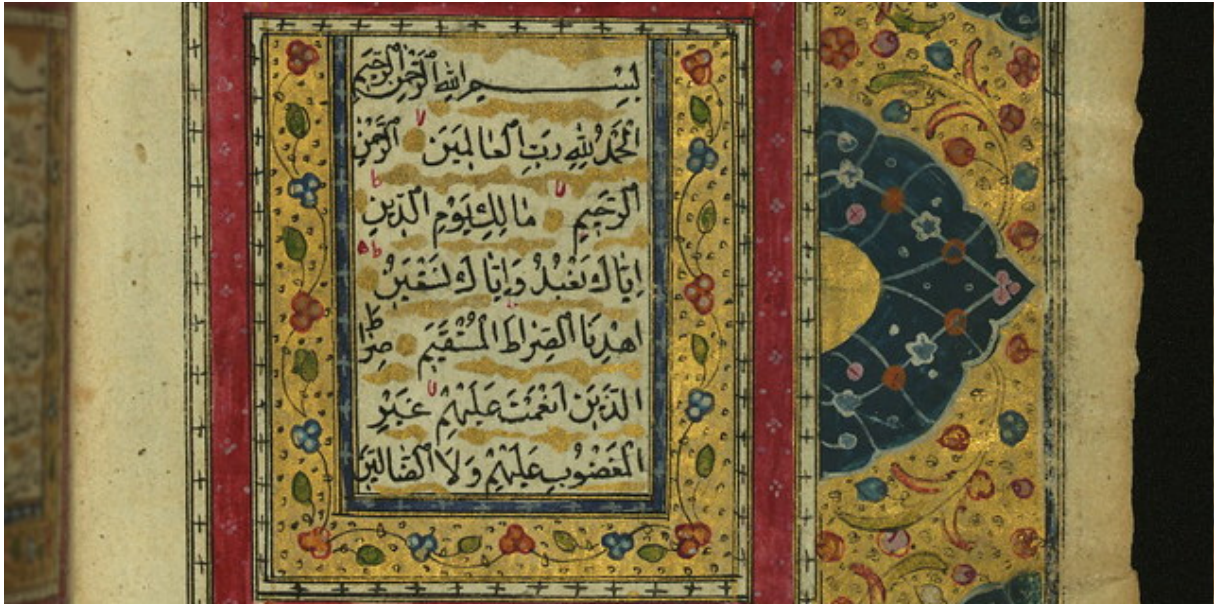 بِسْمِ اللهِ الرَّحْمٰنِ الرَّحِيمِ
اَلْحَمْدُ لِلّٰهِ رَبِّ الْعَالَمِينَ لا الرَّحْمٰنِ
الرَّحِيمِ لا مَالِكِ يَوْمِ الدِّينِ ط
اِيَّاكَ نَعْبُدُ وَاِيَّاكَ نَسْتَعِينُ ط
اِهْدِنَا الصِّرَاطَ الْمُسْتَقِيمَ لا صِرَاطَ
الَّذِينَ اَنْعَمْتَ عَلَيْهِمْ لا غَيْرِ
الْمَغْضُوبِ عَلَيْهِمْ وَلَا الضَّالِّينَ